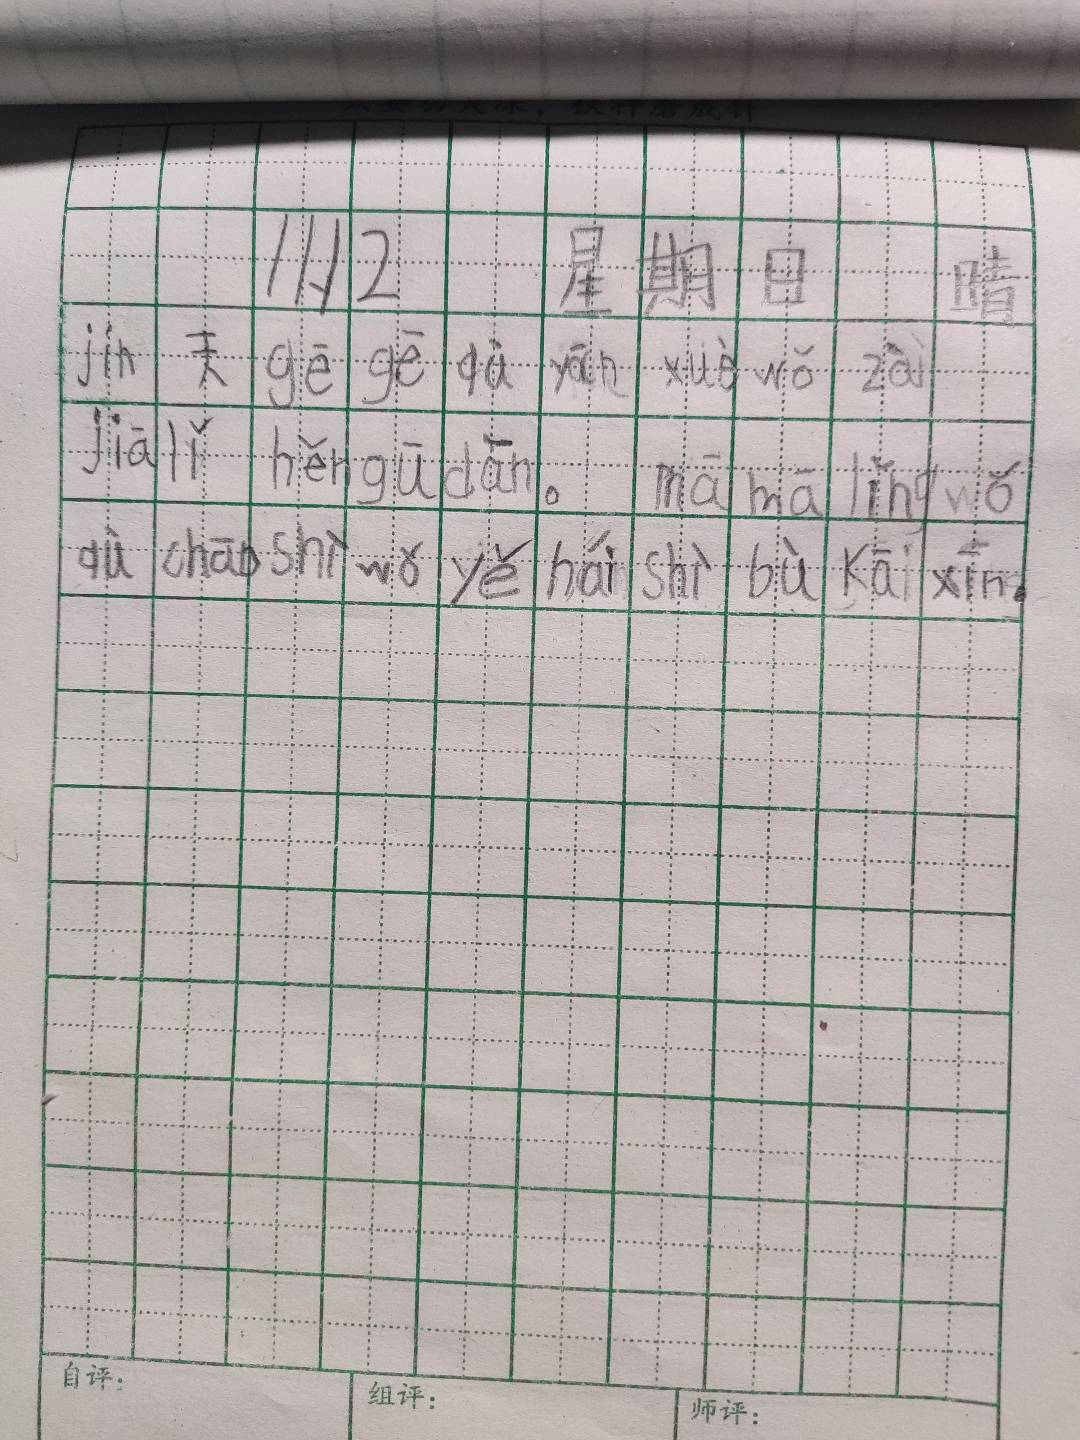 11月2 星期日 晴
jīn 天 gē gē qù yán xuè wǒ zài
jiā lǐ hěn gū dān。 mā mā lǐng wǒ
qù chāo shì wǒ yě hái shì bù kāi xīn。
自评:
组评:
师评: